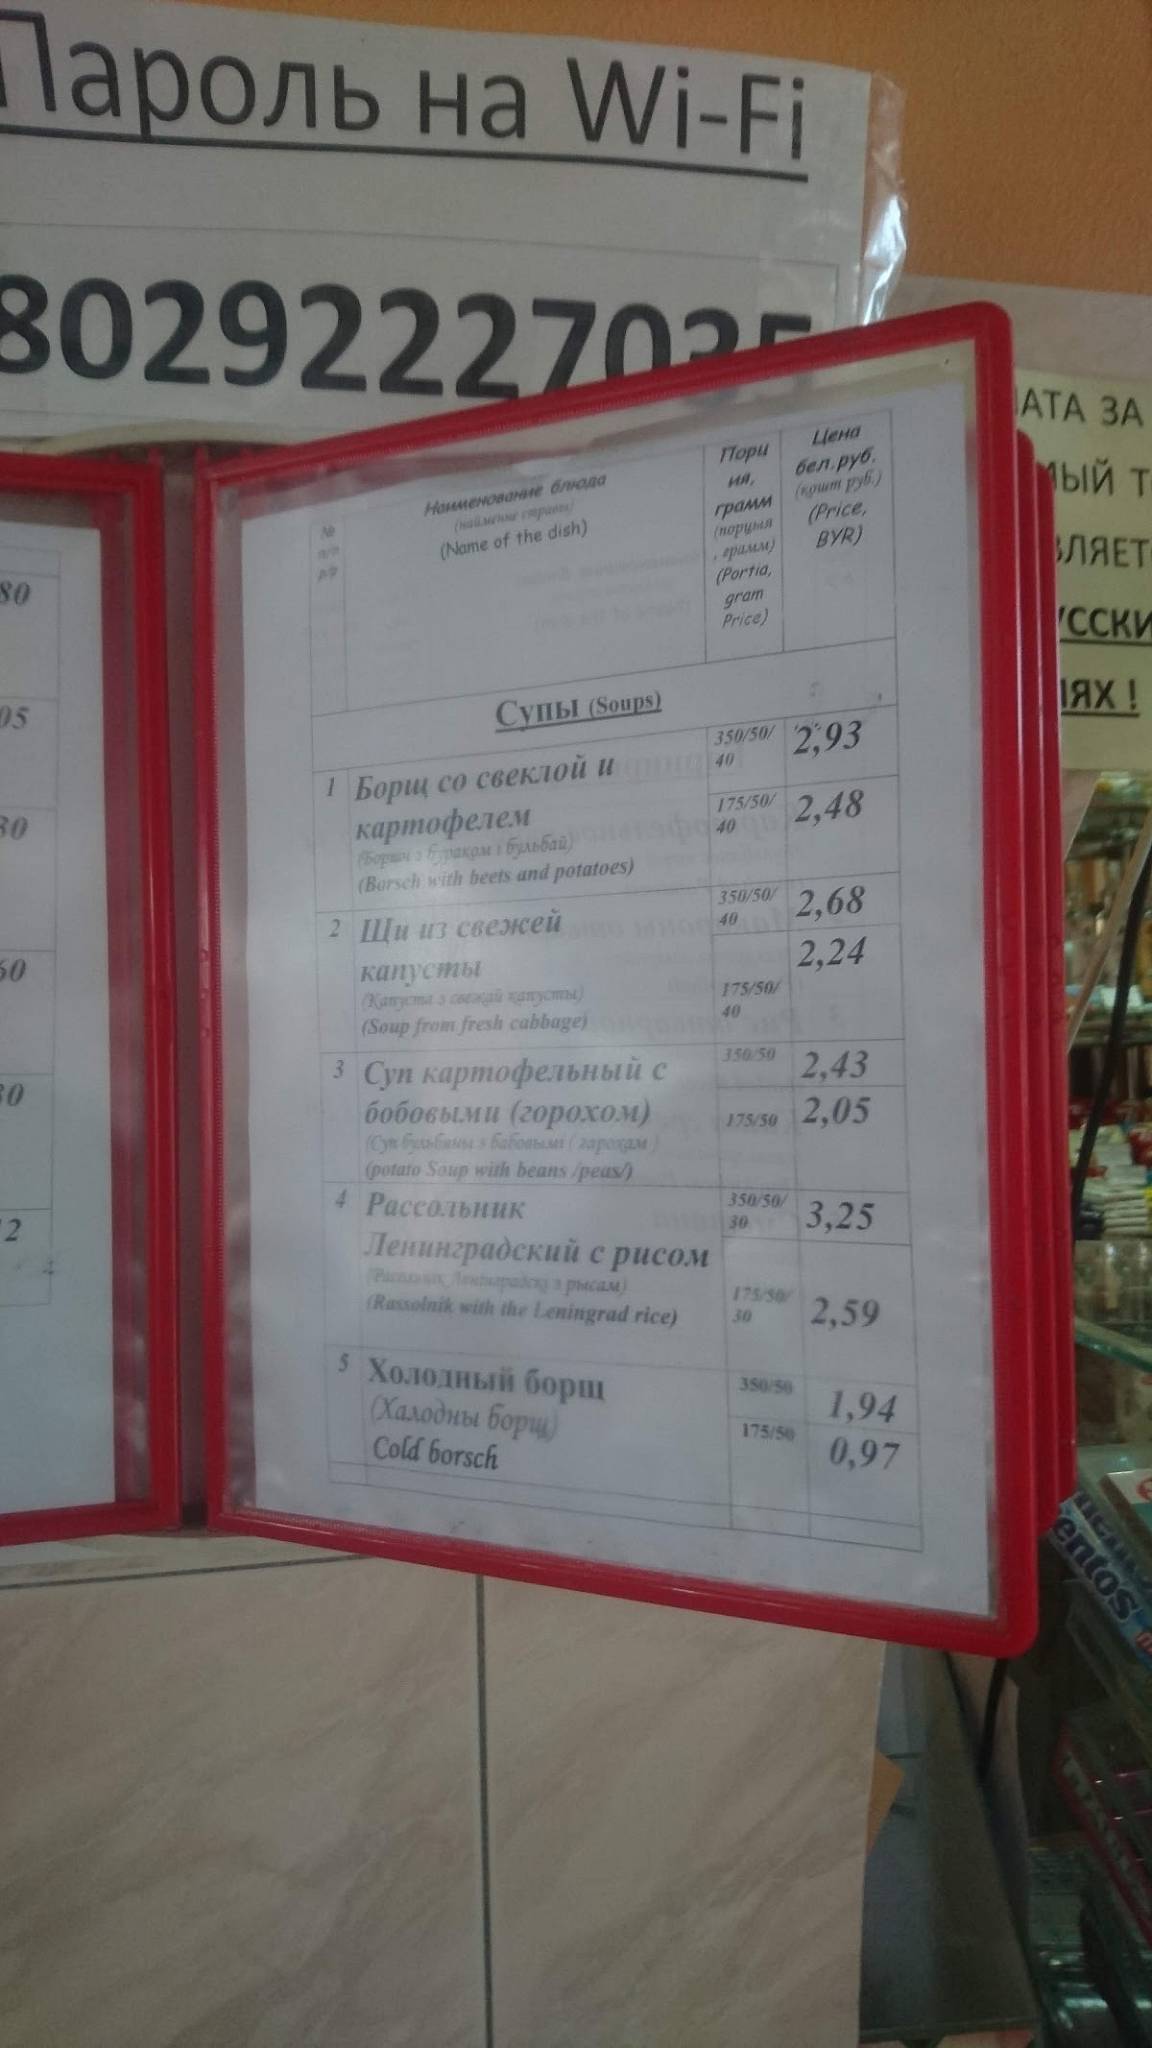 Пароль на Wi-Fi
80292227035
АТА ЗА
ЫЙ Т
ВЛЯЕТ
УССКИ
ЯХ !
80
05
30
60
30
12
№
п/п
р/р
Наименование блюда
(найменне стравы)
(Name of the dish)
Порц
ия,
грамм
(порцыя
, грамм)
(Portia,
gram
Price)
Цена
бел.руб.
(кошт руб.)
(Price,
BYR)
Супы (Soups)
1 Борщ со свеклой и 350/50/ 2,93
40
картофелем 175/50/ 2,48
40
(Боршч з бураком і бульбай)
(Borsch with beets and potatoes)
2 Щи из свежей 350/50/ 2,68
40
капусты 2,24
(Капуста з свежай капусты) 175/50/
40
(Soup from fresh cabbage)
3 Суп картофельный с 350/50 2,43
бобовыми (горохом) 175/50 2,05
(Суп бульбяны з бабовымі ( гарохам )
(potato Soup with beans /peas/)
4 Рассольник 350/50/ 3,25
30
Ленинградский с рисом
(Расольнік Ленінградскі з рысам) 175/50/ 2,59
30
(Rassolnik with the Leningrad rice)
5 Холодный борщ 350/50 1,94
(Халодны борщ) 175/50 0,97
Cold borsch
entos